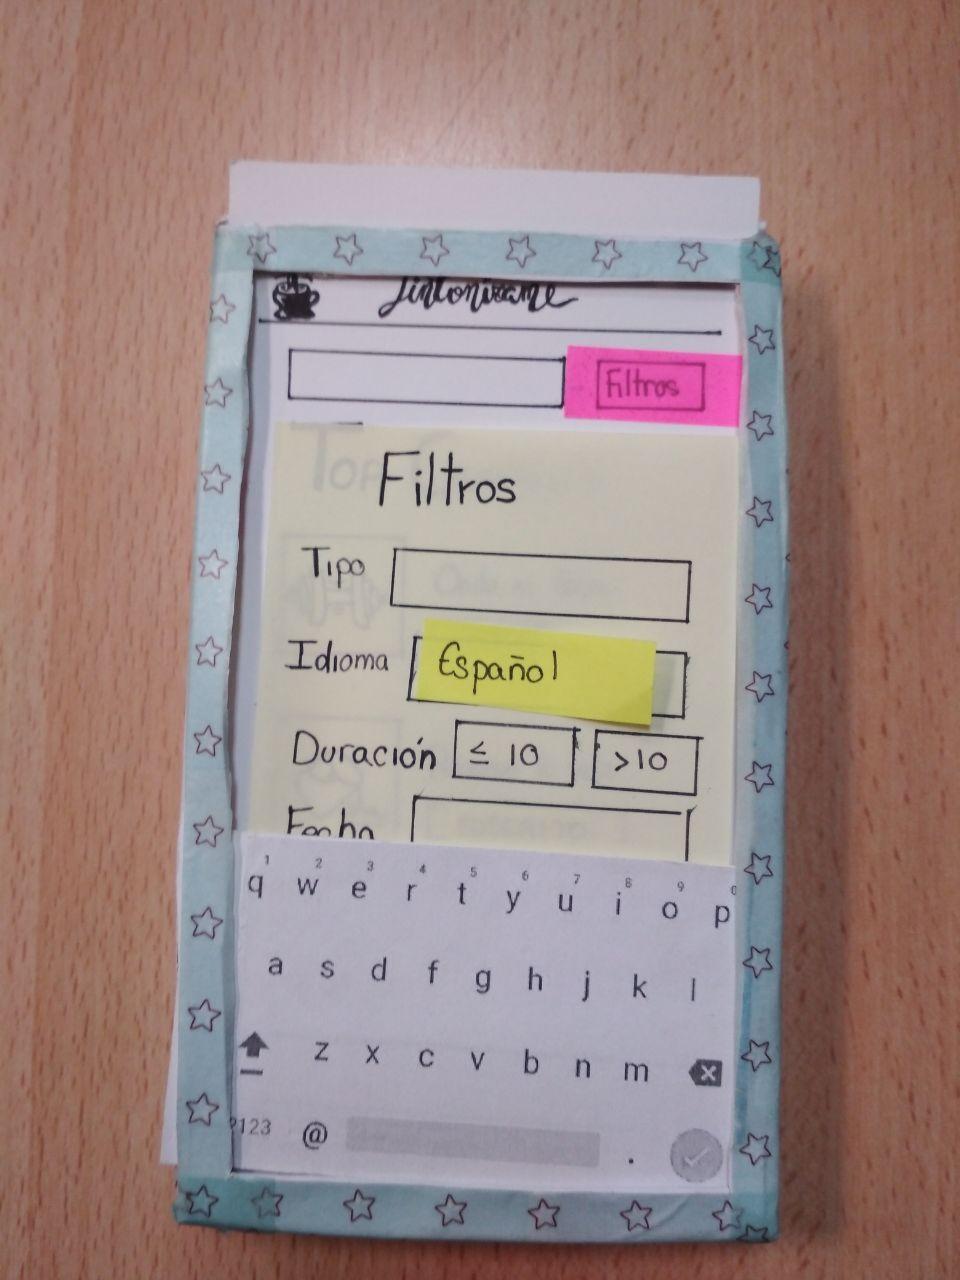 Sintonízame
Filtros
Filtros
Tipo
Idioma Español
Duración ≤ 10 >10
Fecha
1 2 3 4 5 6 7 8 9 0
q w e r t y u i o p
a s d f g h j k l
z x c v b n m
?123 @ .